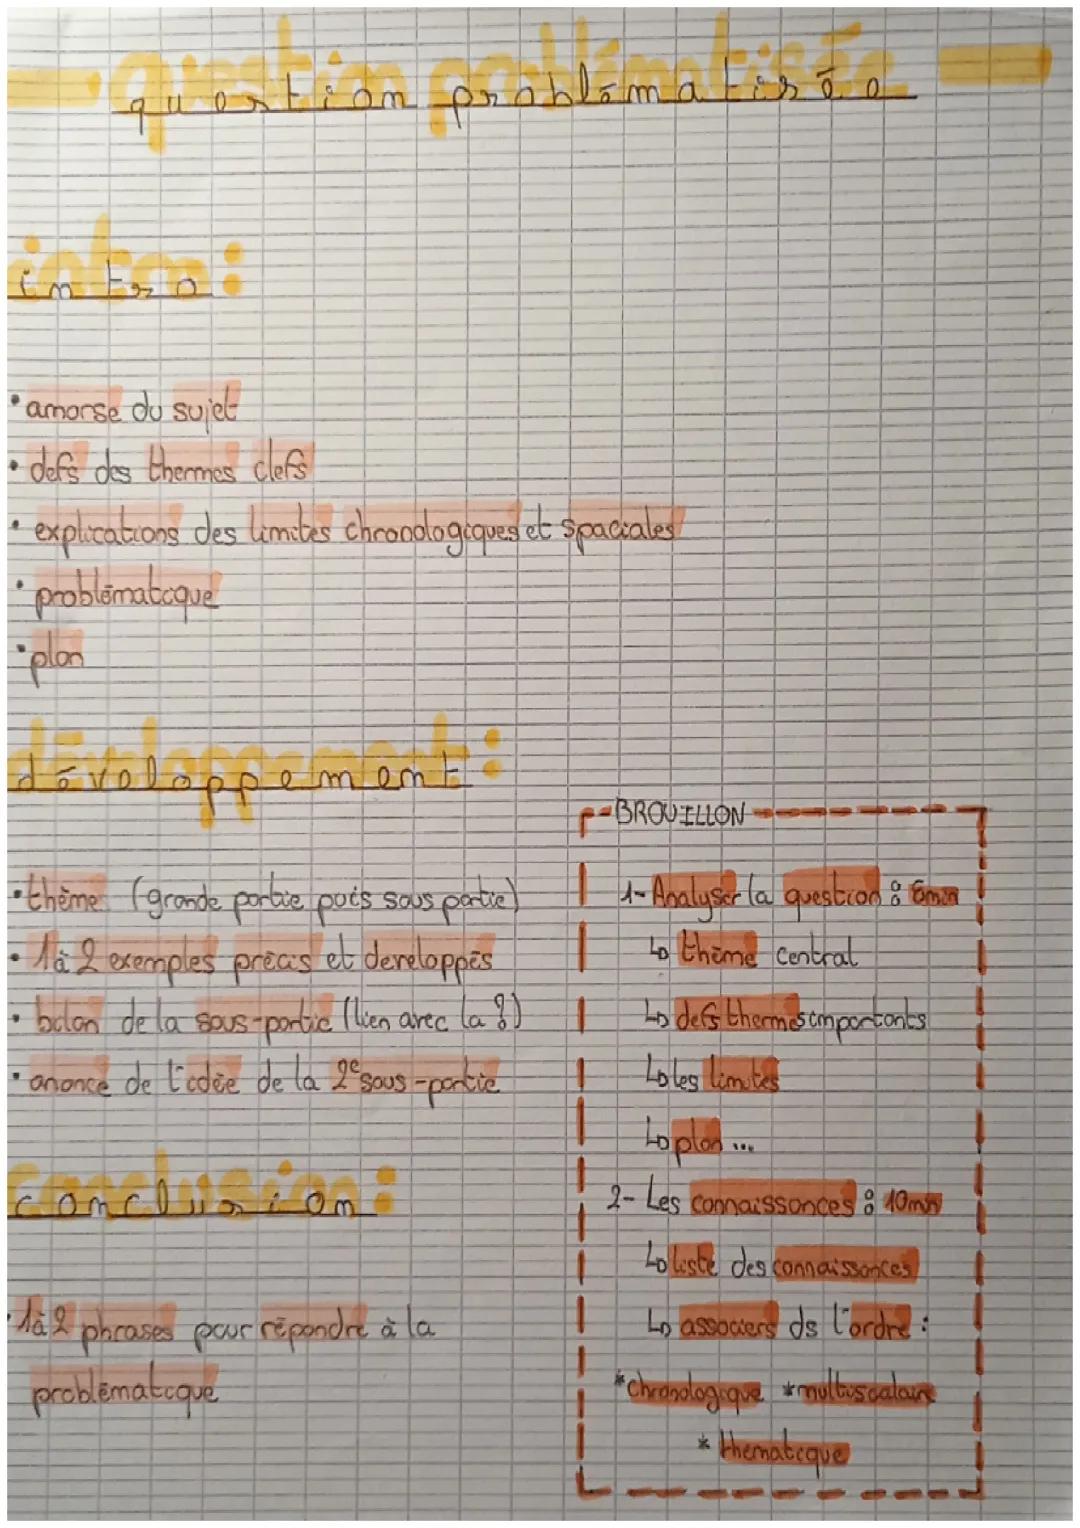 question problématisée
intro :
• amorse du sujet
• defs des thermes clefs
• explications des limites chronologiques et spaciales
• problématique
• plan
développement :
• thème (grande partie puis sous partie)
• 1 à 2 exemples précis et developpés
• bilan de la sous-partie (lien avec la ?)
• anonce de l'idée de la 2e sous-partie
conclusion :
• 1 à 2 phrases pour répondre à la
problématique
BROUILLON
1- Analyser la question : 6min
↳ thème central
↳ defs thermes importants
↳ les limites
↳ plan ...
2- Les connaissances : 10min
↳ liste des connaissances
↳ associers ds l'ordre :
* chronologique * multiscalaire
* thematique